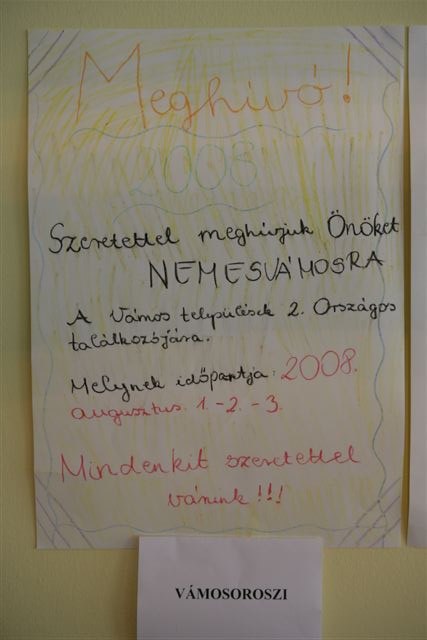 Meghívó!
2008
Szeretettel meghívjuk Önöket
NEMESVÁMOSRA
A Vámos települések 2. Országos
találkozójára.
Melynek időpontja: 2008.
augusztus. 1.-2.-3.
Mindenkit szeretettel
várunk!!!
VÁMOSOROSZI